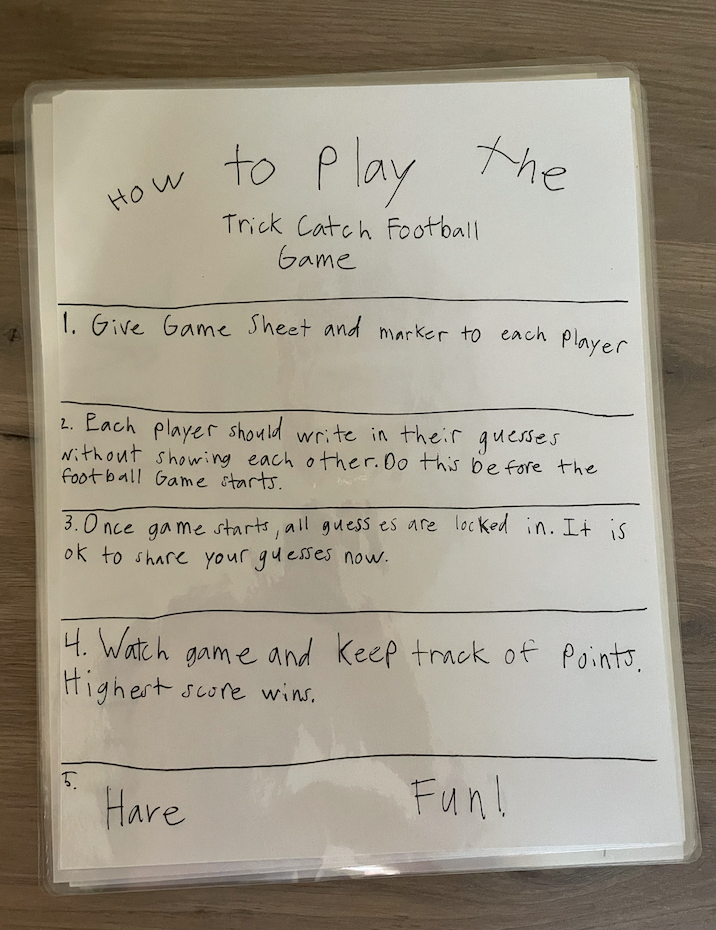 How to Play The
Trick Catch Football
Game
1. Give Game Sheet and marker to each Player
2. Each player should write in their guesses
without showing each other. Do this before the
football Game starts.
3. Once game starts, all guesses are locked in. It is
ok to share your guesses now.
4. Watch game and keep track of points.
Highest score wins.
5.
Have Fun!